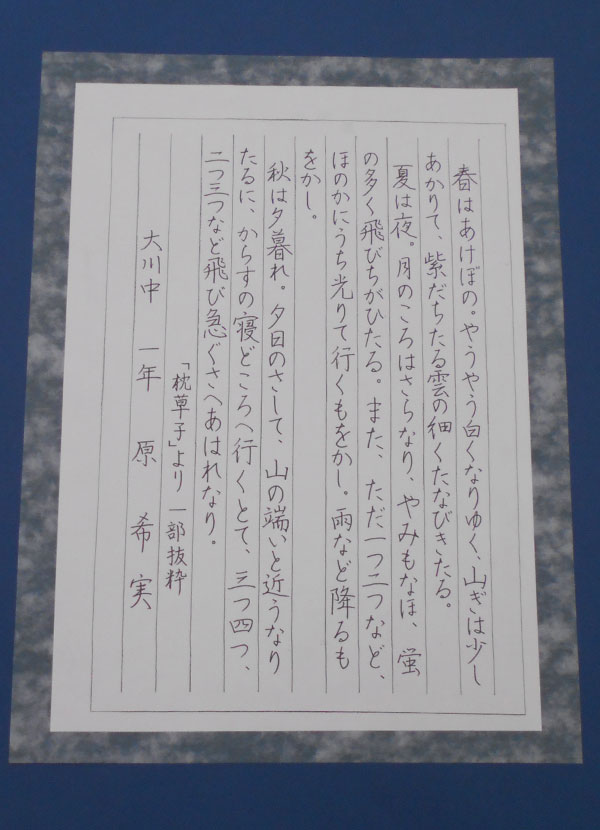 春はあけぼの。やうやう白くなりゆく、山ぎは少し
あかりて、紫だちたる雲の細くたなびきたる。
夏は夜。月のころはさらなり、やみもなほ、蛍
の多く飛びちがひたる。また、ただ一つ二つなど、
ほのかにうち光りて行くもをかし。雨など降るも
をかし。
秋は夕暮れ。夕日のさして、山の端いと近うなり
たるに、からすの寝どころへ行くとて、三つ四つ、
二つ三つなど飛び急ぐさへあはれなり。
「枕草子」より 一部抜粋
大川中 一年 原 希実